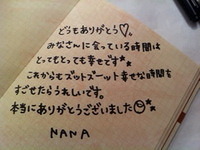 どうもありがとう♡。
みなさんに会っている時間は
とってもとっても幸せです★
これからもズットズーット幸せな時間を
すごせたらうれしいです。
本当にありがとうございました☺★
NANA